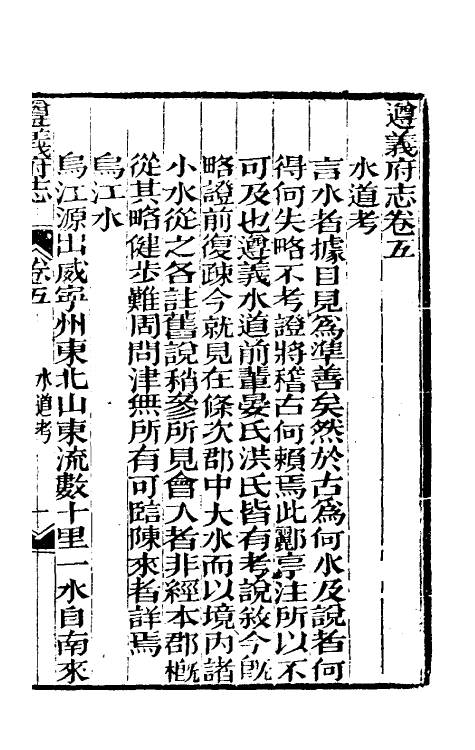 遵義府志卷五
水道考
言水者據目見爲準善矣然於古爲何水及說者何
得何失略不考證將稽古何賴焉此酈亭注所以不
可及也遵義水道前輩晏氏洪氏皆有考說敘今旣
略證前復疎今就見在條次郡中大水而以境內諸
小水從之各註舊說稍參所見會入者非經本郡槪
從其略健步難周問津無所有可臨陳來者詳焉
烏江水
烏江源出威寧州東北山東流數十里一水自南來
遵義府志
卷五
水道考
一